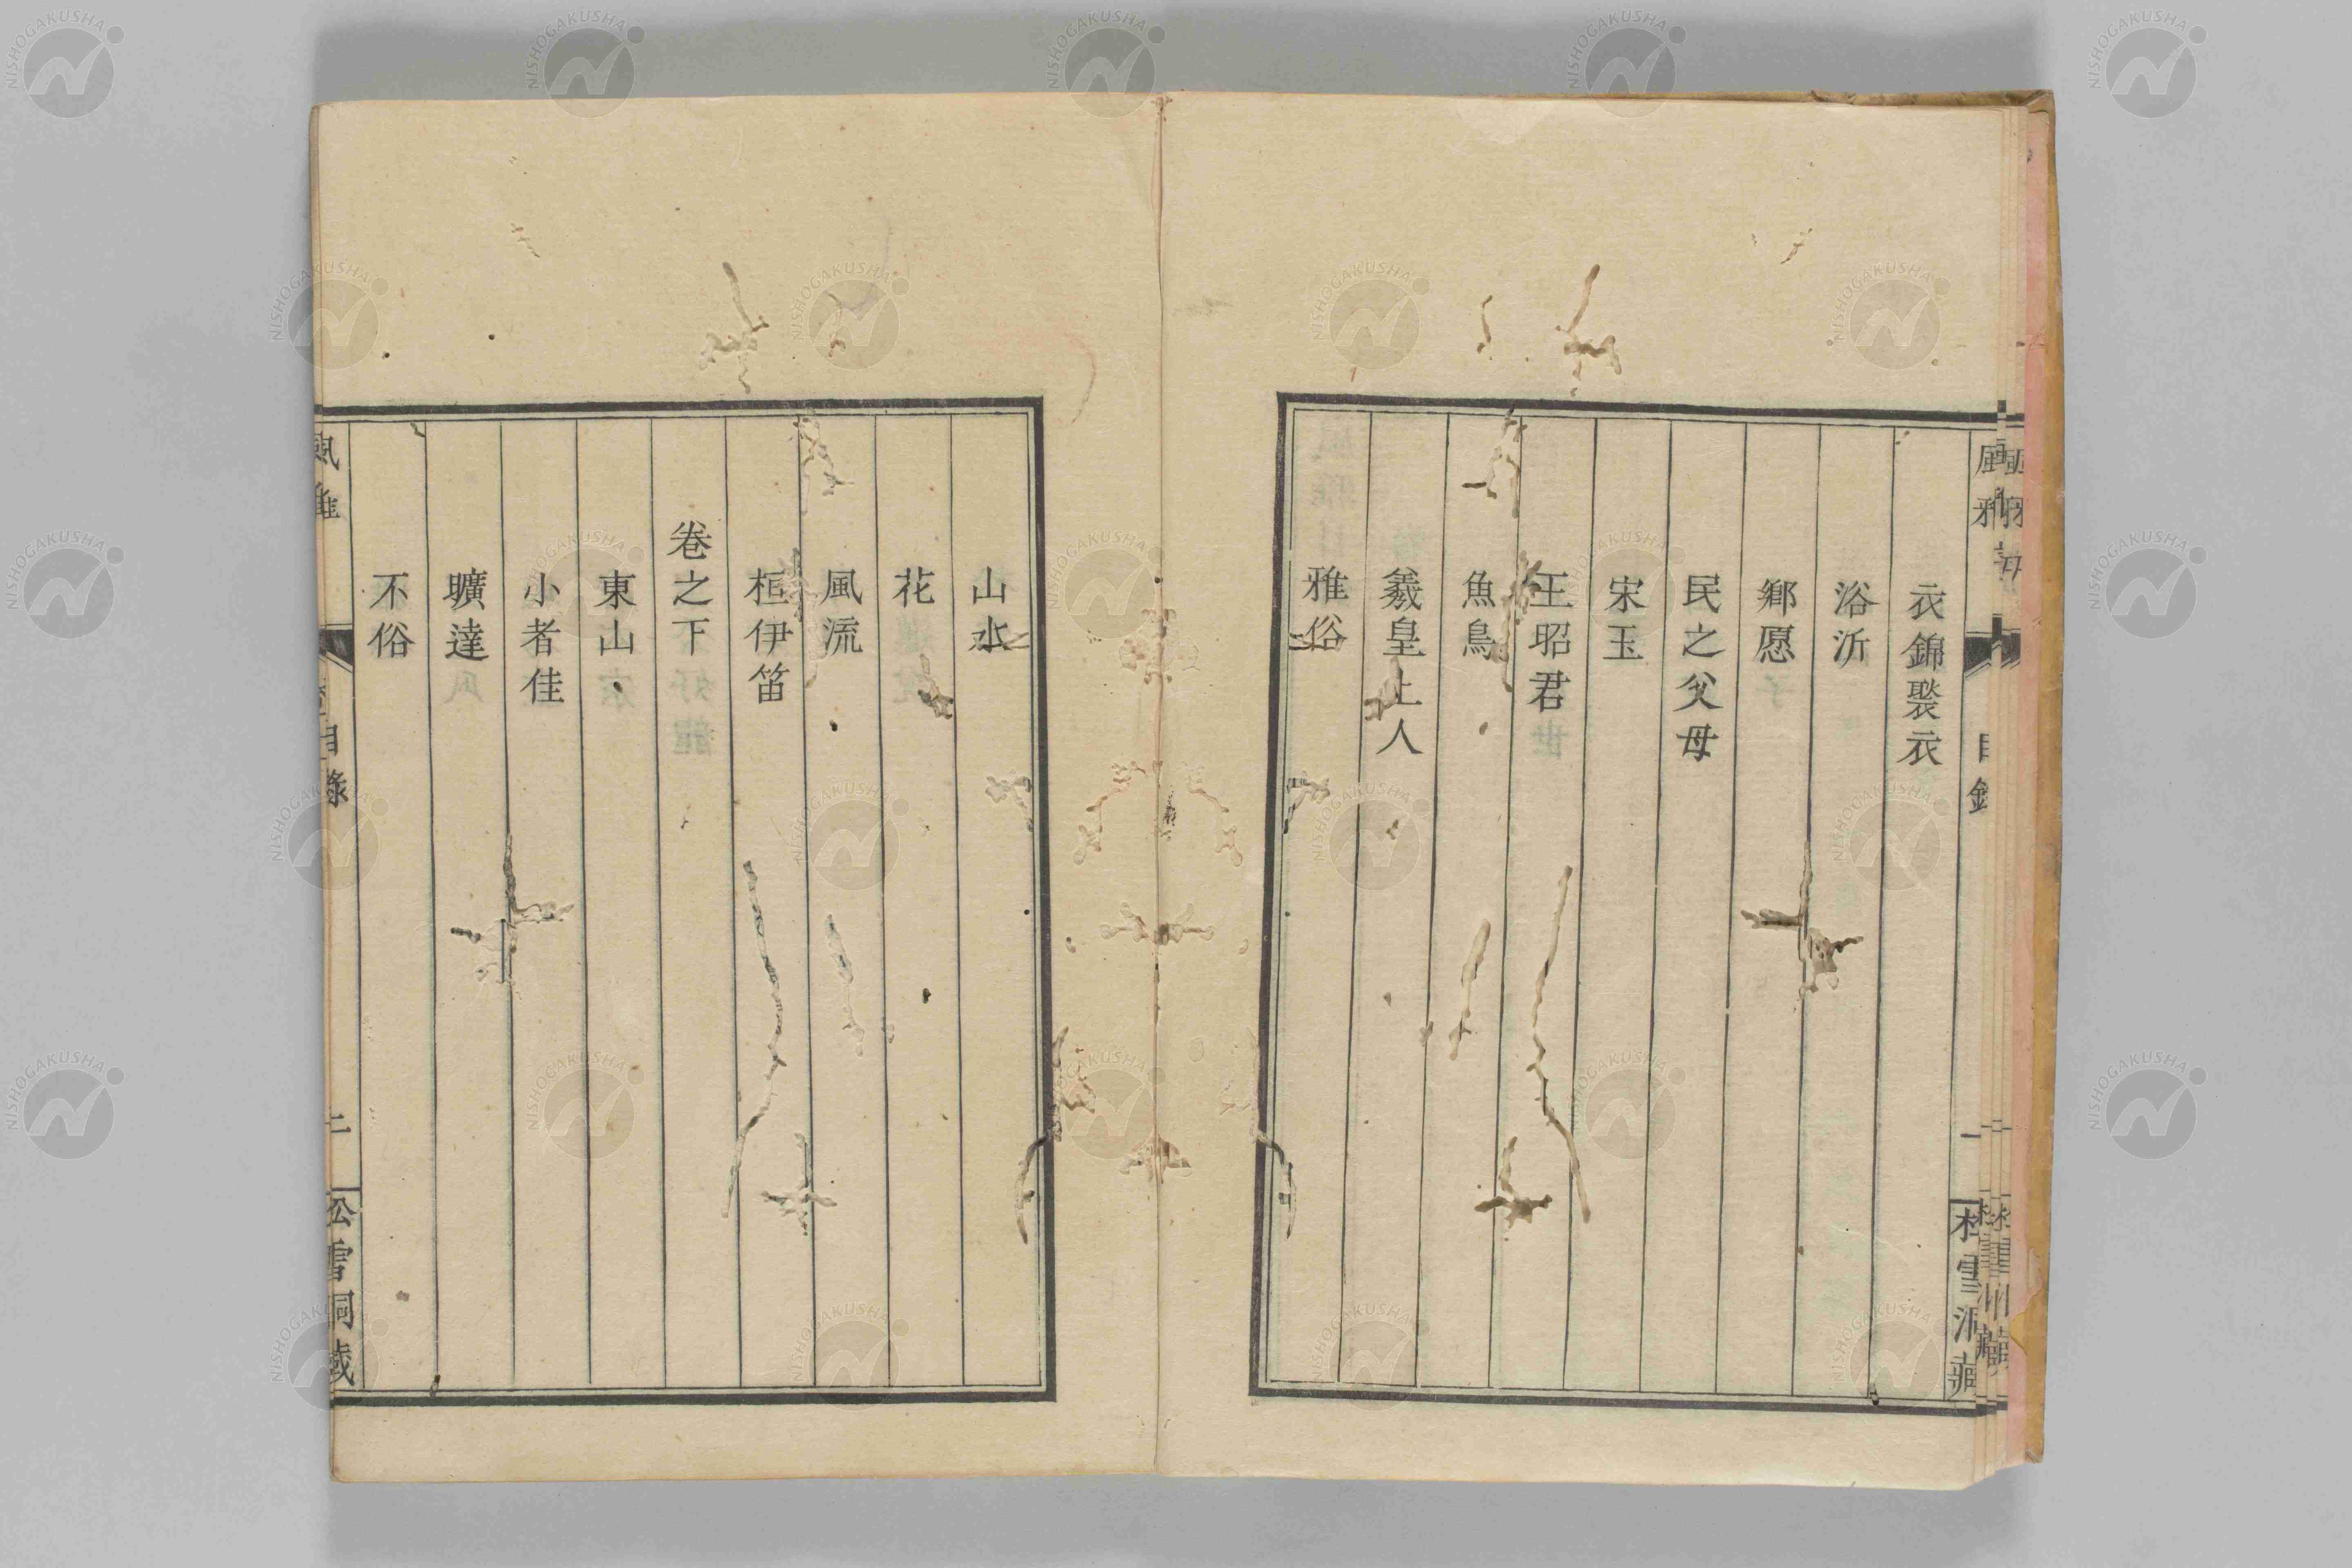 衣錦褧衣
浴沂
鄕愿
民之父母
宋玉
王昭君
魚鳥
羲皇上人
雅俗
山水
花
風流
桓伊笛
卷之下
東山
小者佳
曠達
不俗
風雅
目錄
二
松雪洞藏
NISHOGAKUSHA